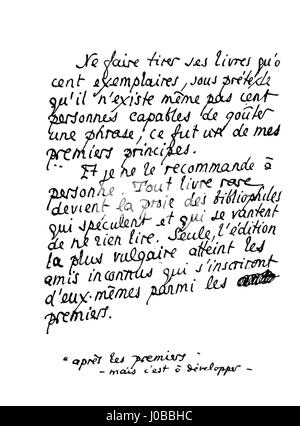 Ne faire tirer ses livres qu'à
cent exemplaires, sous prétexte
qu'il n'existe même pas cent
personnes capables de goûter
une phrase, ce fut un de mes
premiers principes.
Et je ne le recommande à
personne. Tout livre rare
devient la proie des bibliophiles
qui spéculent et qui se vantent
de ne rien lire. Seule, l'édition
la plus vulgaire atteint les
amis inconnus qui s'inscriront
d'eux-mêmes parmi les
premiers.
"après les premiers"
- mais c'est à développer -
alamy stock photo
J0BBHC